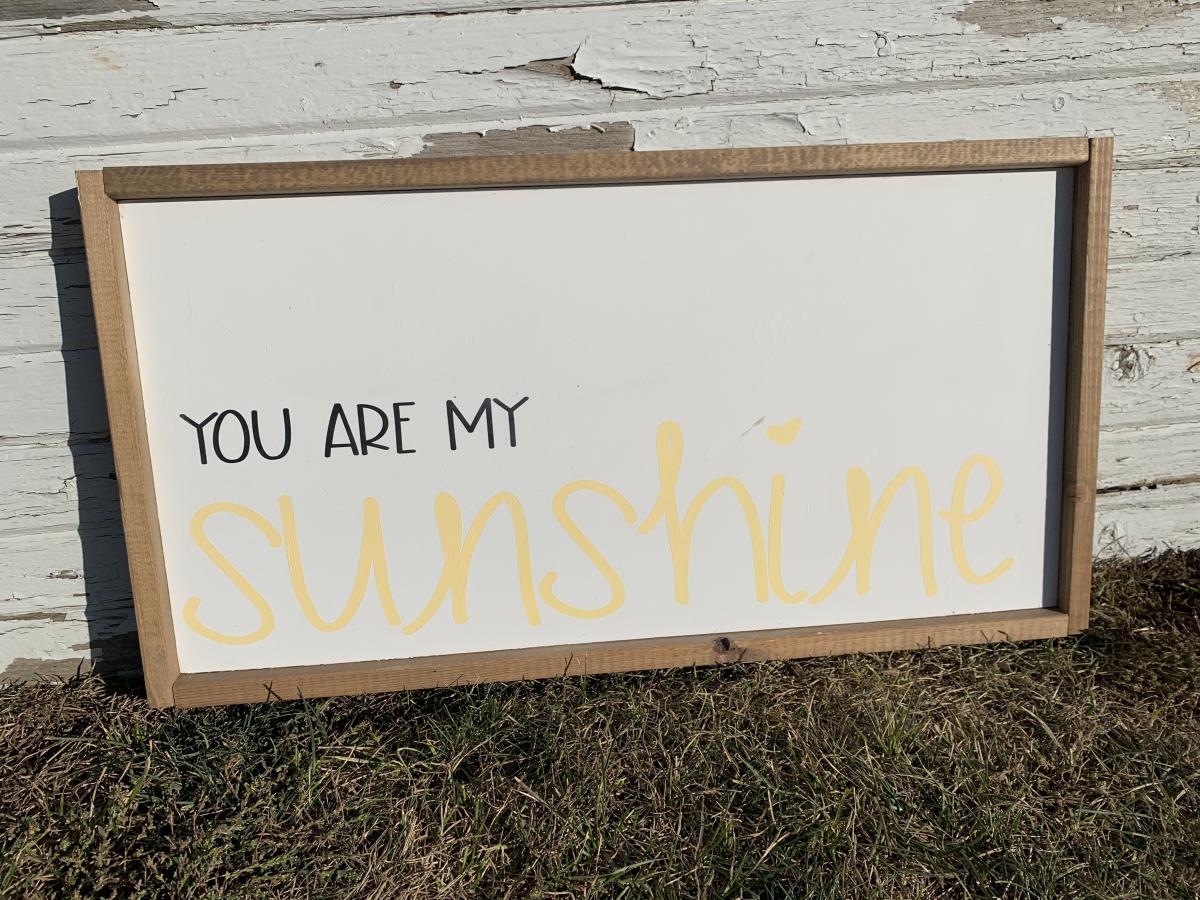 YOU ARE MY
sunshine